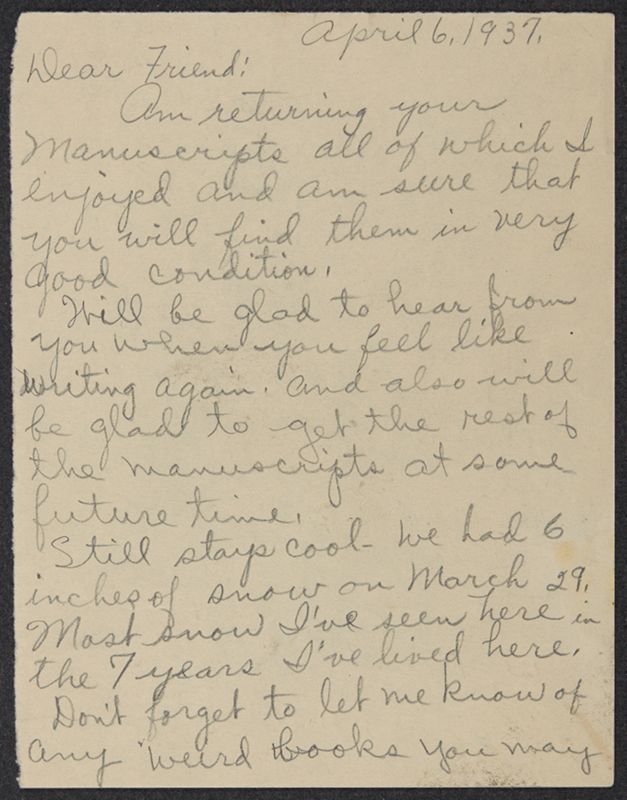 April 6, 1937.
Dear Friend!
Am returning your
Manuscripts all of which I
enjoyed and am sure that
you will find them in very
good condition.
Will be glad to hear from
you when you feel like
writing again. and also will
be glad to get the rest of
the manuscripts at some
future time.
Still stays cool - We had 6
inches of snow on March 29.
Most snow I've seen here in
the 7 years I've lived here.
Don't forget to let me know of
any weird books you may